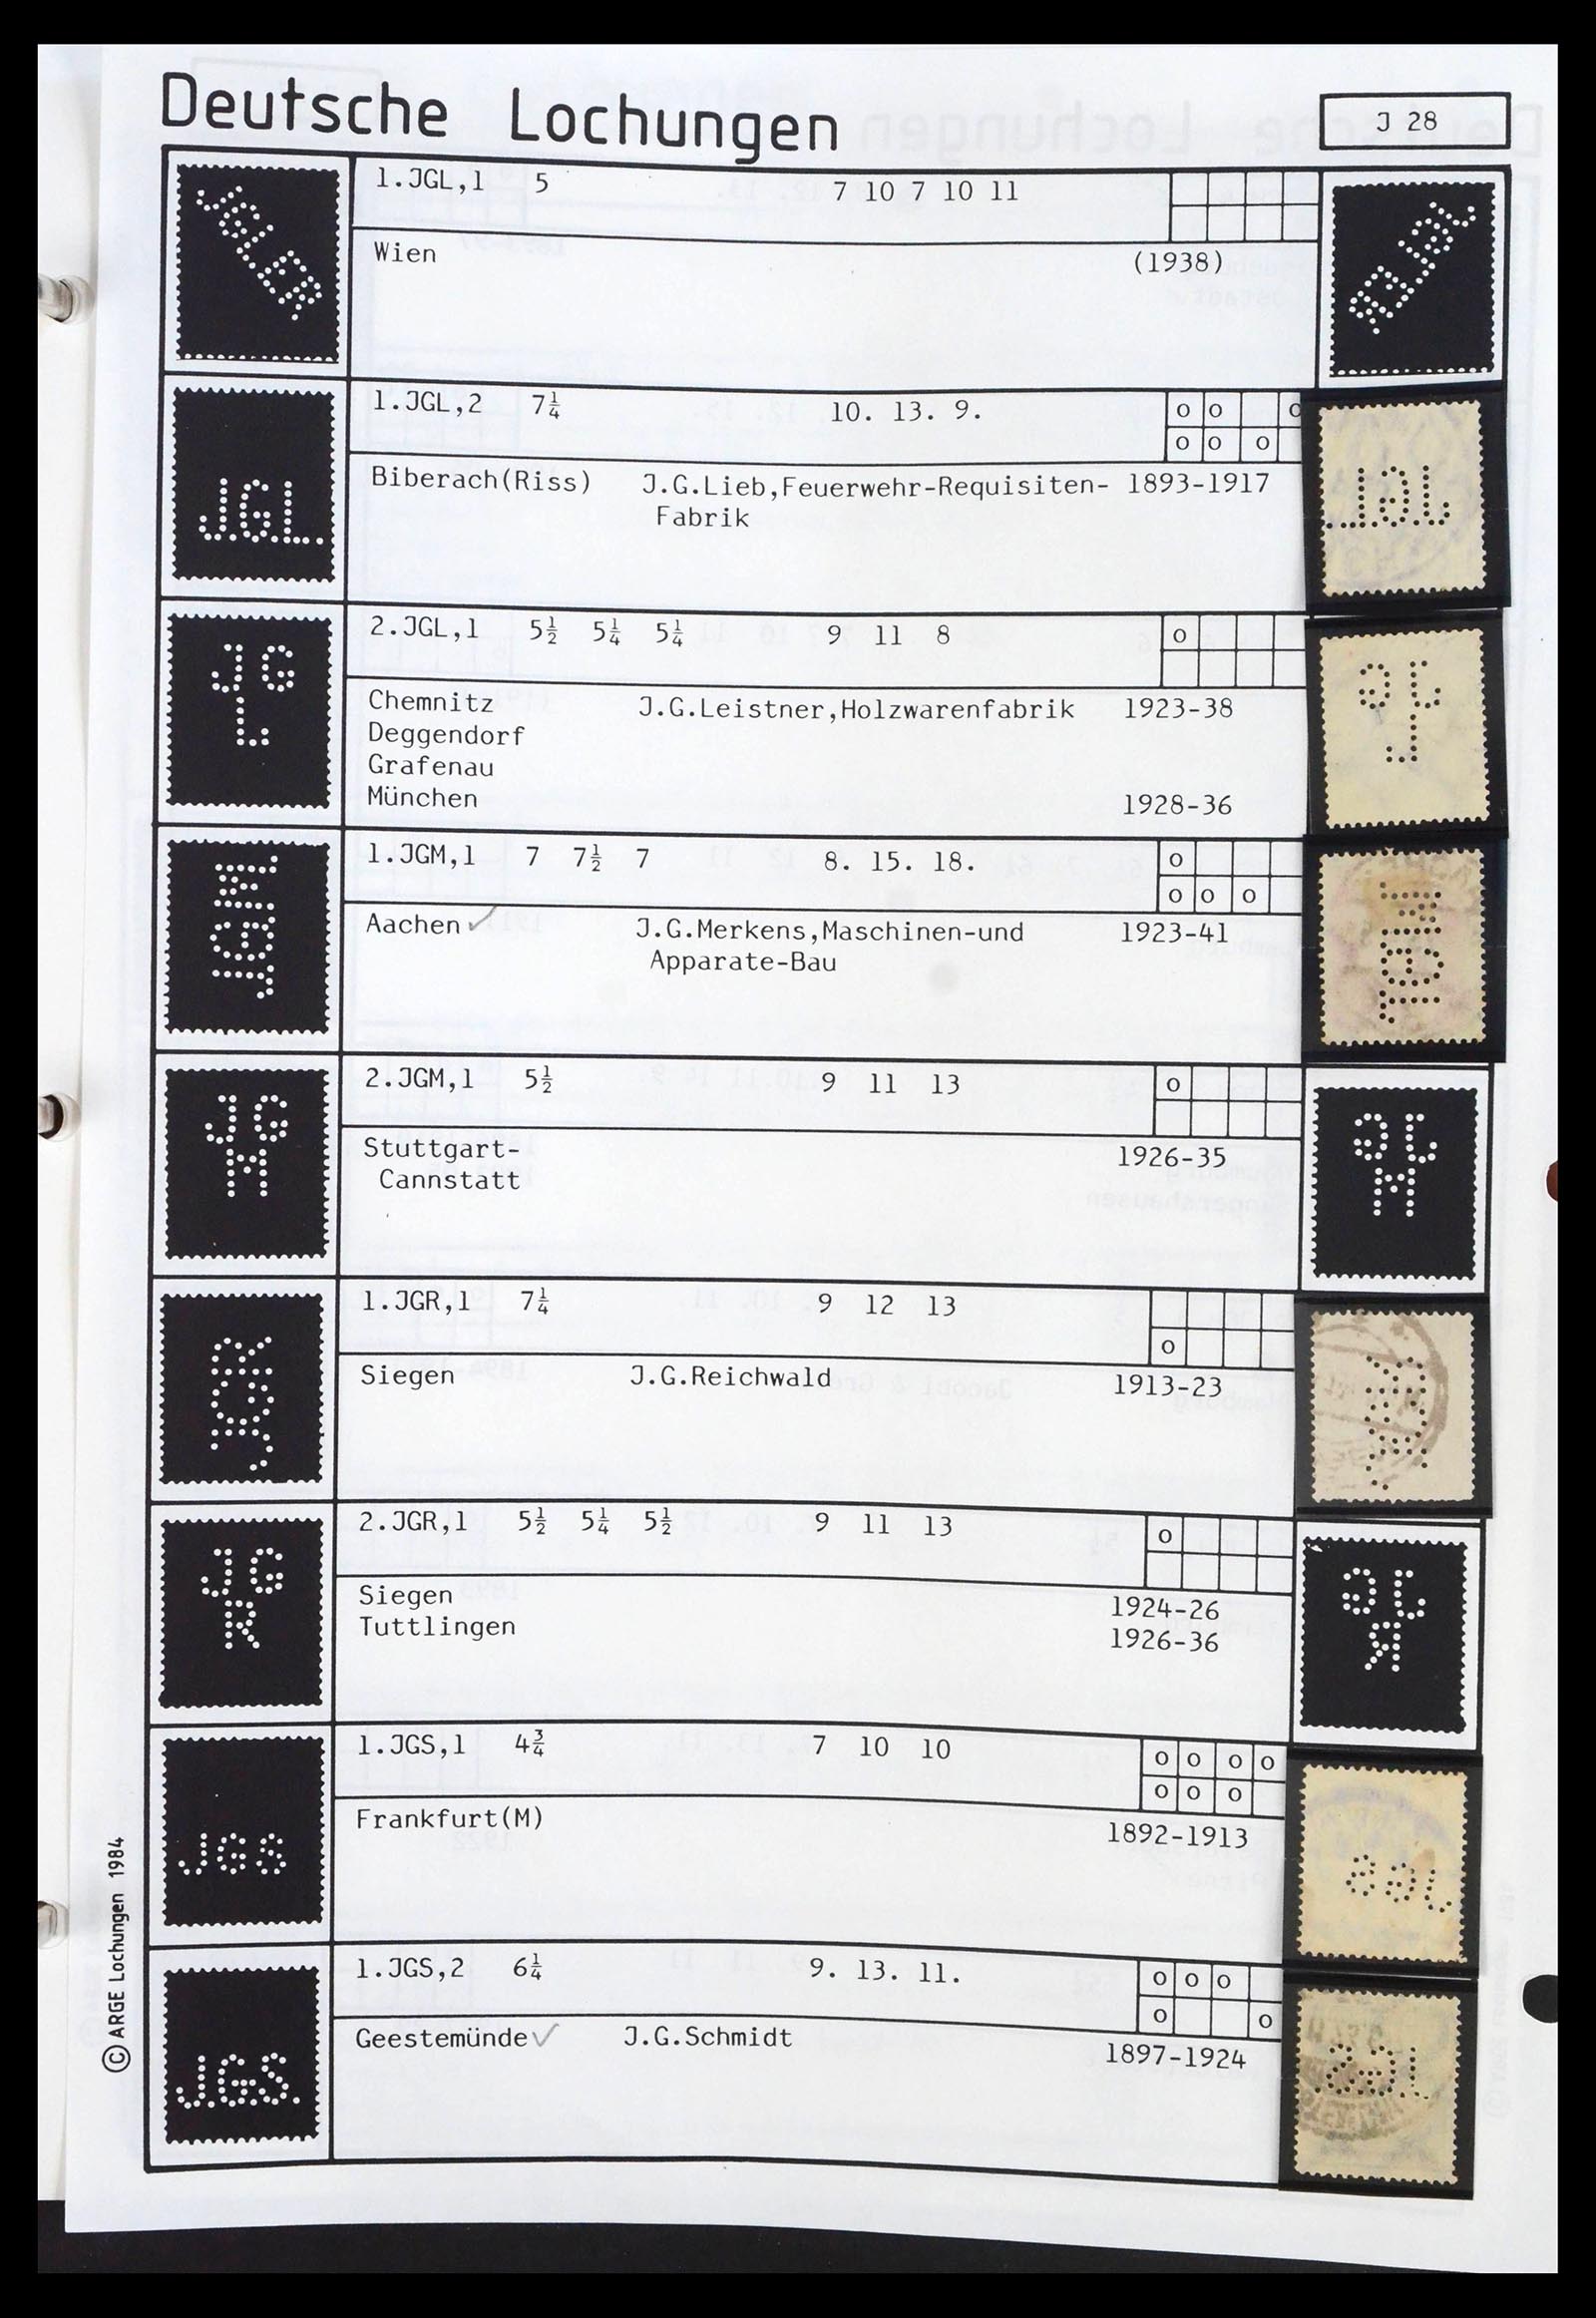 Deutsche Lochungen
J 28
JGLER
1.JGL,1 5 7 10 7 10 11
Wien (1938)
JGL.
1.JGL,2 7¼ 10. 13. 9.
o o o
o o o
Biberach(Riss) J.G.Lieb,Feuerwehr-Requisiten- 1893-1917
Fabrik
JG
L
2.JGL,1 5½ 5¼ 5¼ 9 11 8
o
Chemnitz J.G.Leistner,Holzwarenfabrik 1923-38
Deggendorf
Grafenau
München 1928-36
J.G.M.
1.JGM,1 7 7½ 7 8. 15. 18.
o
o o o
Aachen✓ J.G.Merkens,Maschinen-und 1923-41
Apparate-Bau
JG
M
2.JGM,1 5½ 9 11 13
o
Stuttgart- 1926-35
Cannstatt
JGR
1.JGR,1 7¼ 9 12 13
o
Siegen J.G.Reichwald 1913-23
JG
R
2.JGR,1 5½ 5¼ 5½ 9 11 13
o
Siegen 1924-26
Tuttlingen 1926-36
JGS
1.JGS,1 4¾ 7 10 10
o o o o
o o o
Frankfurt(M) 1892-1913
J.G.S.
1.JGS,2 6¼ 9. 13. 11.
o o o
o o
Geestemünde✓ J.G.Schmidt 1897-1924
© ARGE Lochungen 1984